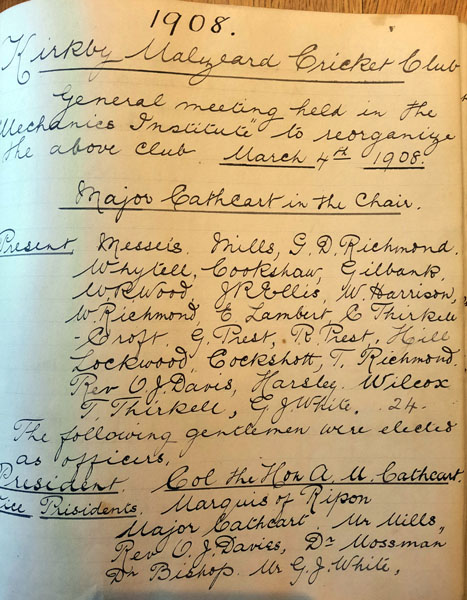 1908.
Kirkby Malzeard Cricket Club
General meeting held in the
"Mechanics Institute" to reorganize
the above club March 4th 1908.
Major Cathcart in the Chair.
Present Messers. Mills, G. D. Richmond.
Whytell, Cookshaw, Gilbank,
W. R Wood J R Ellis, W. Harrison,
W. Richmond E Lambert C Thirkell
-Croft. G. Prest, R. Prest, Hill
Lockwood, Cockshott, T. Richmond.
Rev O. J. Davis, Harsley. Wilcox
T. Thirkell, G. J White. 24.
The following gentlemen were elected
as officers.
President. Col the Hon A. M. Cathcart.
Vice Prisidents. Marquis of Ripon
Major Cathcart. Mr Mills,
Rev O. J. Davies, Dr Mossman
Dr Bishop. Mr G. J. White,